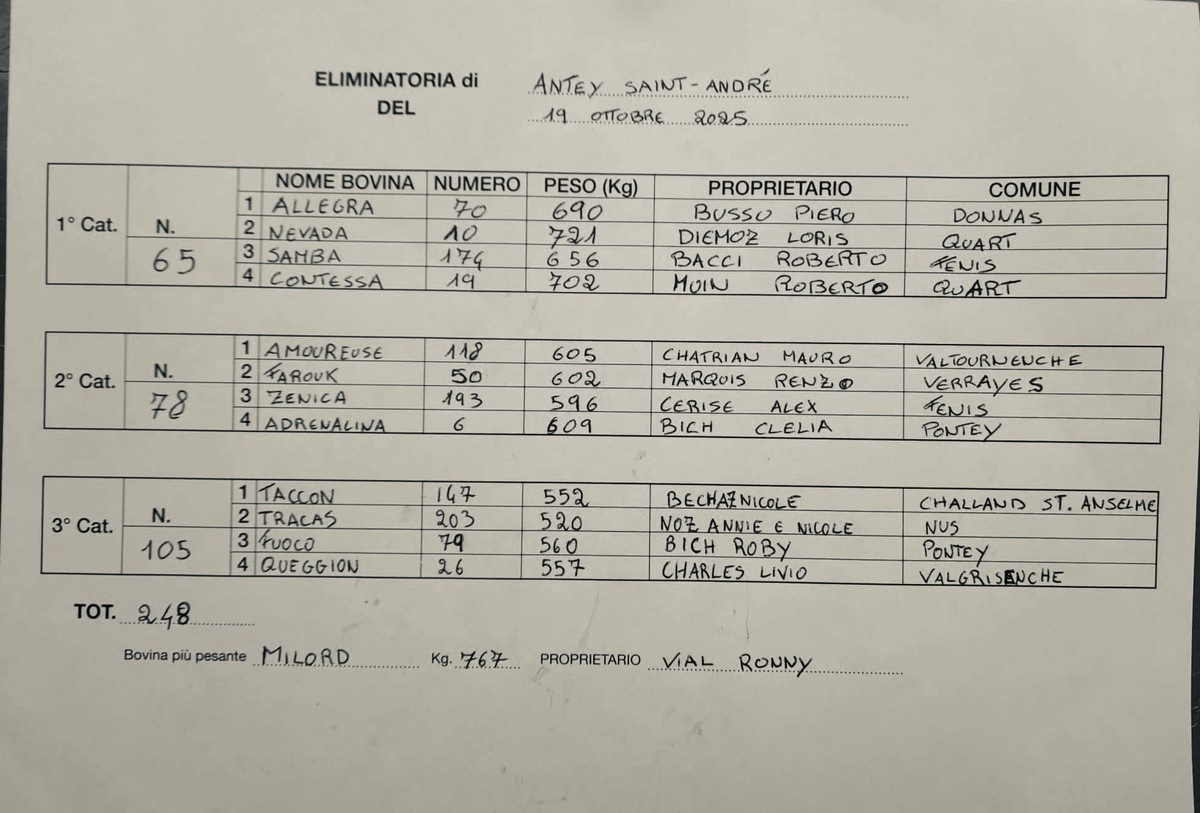 ELIMINATORIA di ANTEY SAINT-ANDRÉ
DEL 19 OTTOBRE 2025
NOME BOVINA NUMERO PESO (Kg) PROPRIETARIO COMUNE
1° Cat. N. 65
1 ALLEGRA 70 690 BUSSO PIERO DONNAS
2 NEVADA 10 721 DIEMOZ LORIS QUART
3 SAMBA 174 656 BACCI ROBERTO FENIS
4 CONTESSA 19 702 MUIN ROBERTO QUART
2° Cat. N. 78
1 AMOUREUSE 118 605 CHATRIAN MAURO VALTOURNENCHE
2 FAROUK 50 602 MARQUIS RENZO VERRAYES
3 ZENICA 193 596 CERISE ALEX FENIS
4 ADRENALINA 6 609 BICH CLELIA PONTEY
3° Cat. N. 105
1 TACCON 147 552 BECHAZ NICOLE CHALLAND ST. ANSELME
2 TRACAS 203 520 NOZ ANNIE E NICOLE NUS
3 FUOCO 79 560 BICH ROBY PONTEY
4 QUEGGION 26 557 CHARLES LIVIO VALGRISENCHE
TOT. 248
Bovina più pesante MILORD Kg. 767 PROPRIETARIO VIAL RONNY